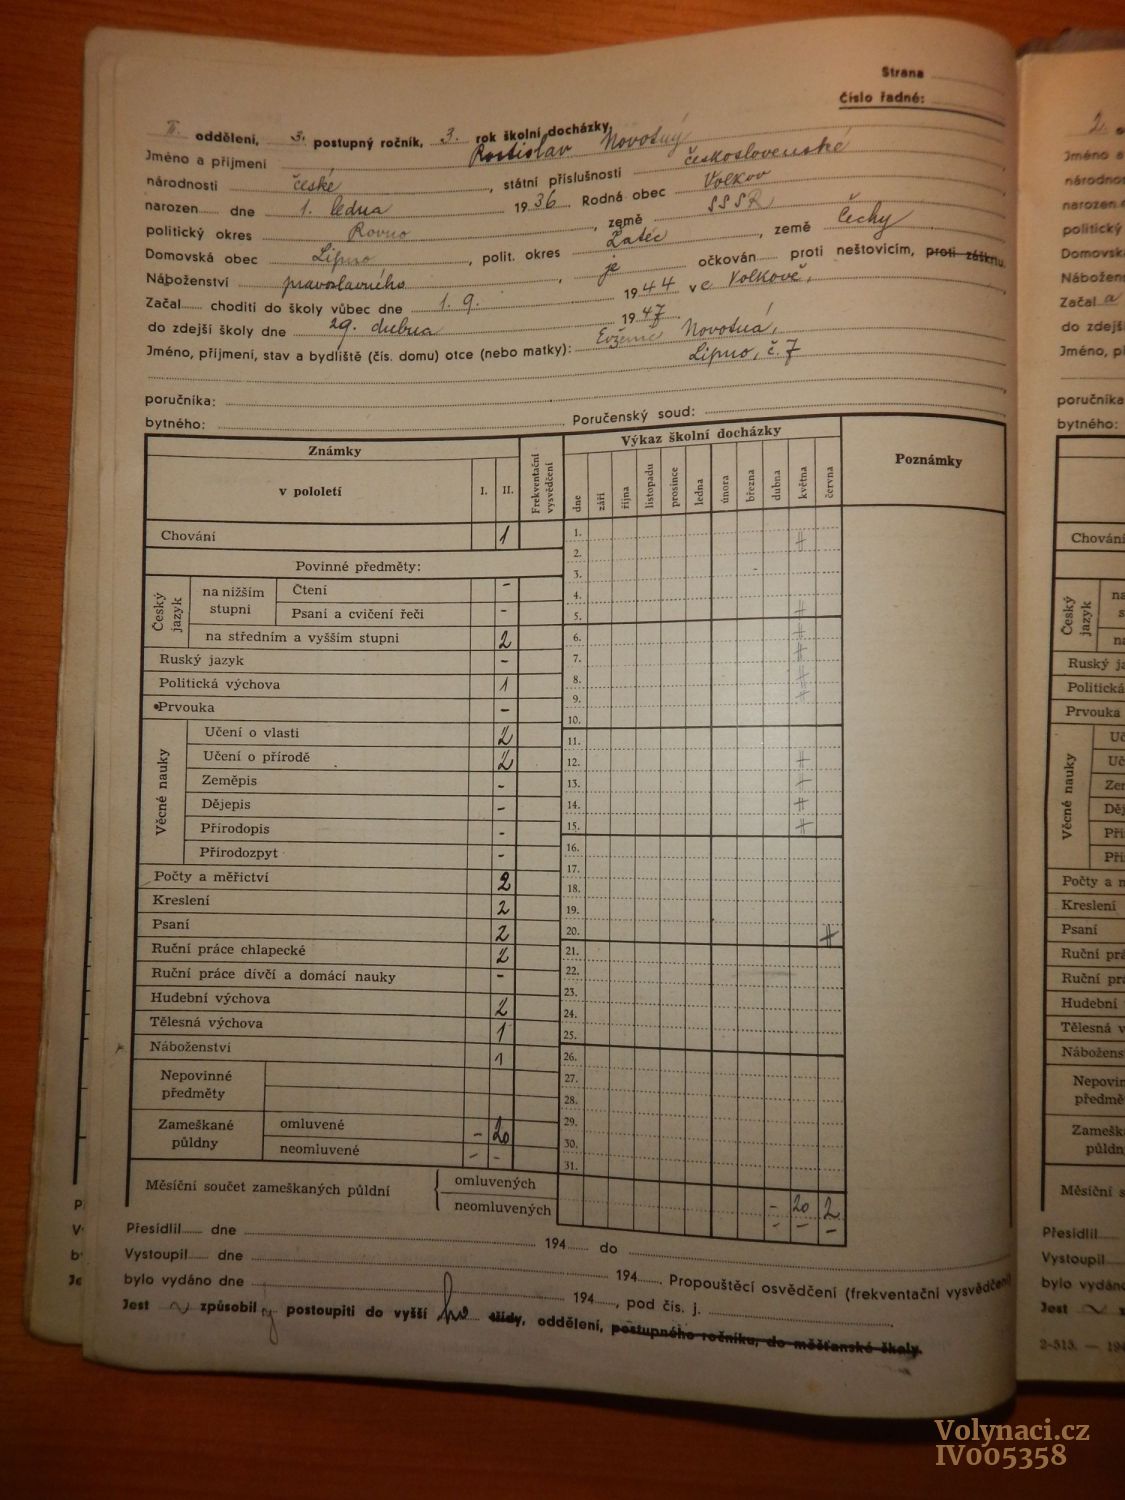 Strana
Číslo řadné:
II. oddělení, 3. postupný ročník, 3. rok školní docházky,
Jméno a přijmení Rostislav Novotný
národnosti české, státní příslušnosti československé
narozen dne 1. ledna 1936 Rodná obec Volkov
politický okres Rovno, země SSSR
Domovská obec Lipno, polit. okres Žatec, země Čechy
Náboženství pravoslavného, je očkován proti neštovicím, proti záškrtu
Začal choditi do školy vůbec dne 1. 9. 1944 ve Volkově,
do zdejší školy dne 29. dubna 1947.
Jméno, příjmení, stav a bydliště (čís. domu) otce (nebo matky): Evženie Novotná,
Lipno, č. 7
poručníka:
bytného: Poručenský soud:
Známky Frekventační vysvědčení Výkaz školní docházky Poznámky
v pololetí I. II. dne září října listopadu prosince ledna února března dubna května června
Chování 1
Povinné předměty:
Český jazyk na nižším stupni Čtení -
Psaní a cvičení řeči -
na středním a vyšším stupni 2
Ruský jazyk -
Politická výchova 1
Prvouka -
Věcné nauky Učení o vlasti 2
Učení o přírodě 2
Zeměpis -
Dějepis -
Přírodopis -
Přírodozpyt -
Počty a měřictví 2
Kreslení 2
Psaní 2
Ruční práce chlapecké 2
Ruční práce dívčí a domácí nauky -
Hudební výchova 2
Tělesná výchova 1
Náboženství 1
Nepovinné předměty
Zameškané půldny omluvené - 20
neomluvené - -
1.
2.
3.
4.
5.
6.
7.
8.
9.
10.
11.
12.
13.
14.
15.
16.
17.
18.
19.
20.
21.
22.
23.
24.
25.
26.
27.
28.
29.
30.
31.
Měsíční součet zameškaných půldní omluvených - 20 2
neomluvených - - -
Přesídlil dne 194 do
Vystoupil dne 194, Propouštěcí osvědčení (frekventační vysvědčení)
bylo vydáno dne 194, pod čís. j.
Jest způsobilý postoupiti do vyšší ho třídy, oddělení, postupného ročníku, do měšťanské školy.
2.
Jméno a
národnos
narozen
politický
Domovsk
Nábožen
Začal a
do zdejš
Jméno, př
poručníka
bytného:
Chování
Český jazyk
na
Ruský ja
Politická
Prvouka
Věcné nauky
Uč
Uč
Zer
Děj
Pří
Pří
Počty a m
Kreslení
Psaní
Ruční prá
Ruční pra
Hudební
Tělesná v
Nábožens
Nepovin
předmě
Zamešk
půldn
Měsíční s
Přesídlil
Vystoupil
bylo vydáno
Jest
2-515. — 194
Volynaci.cz
IV005358